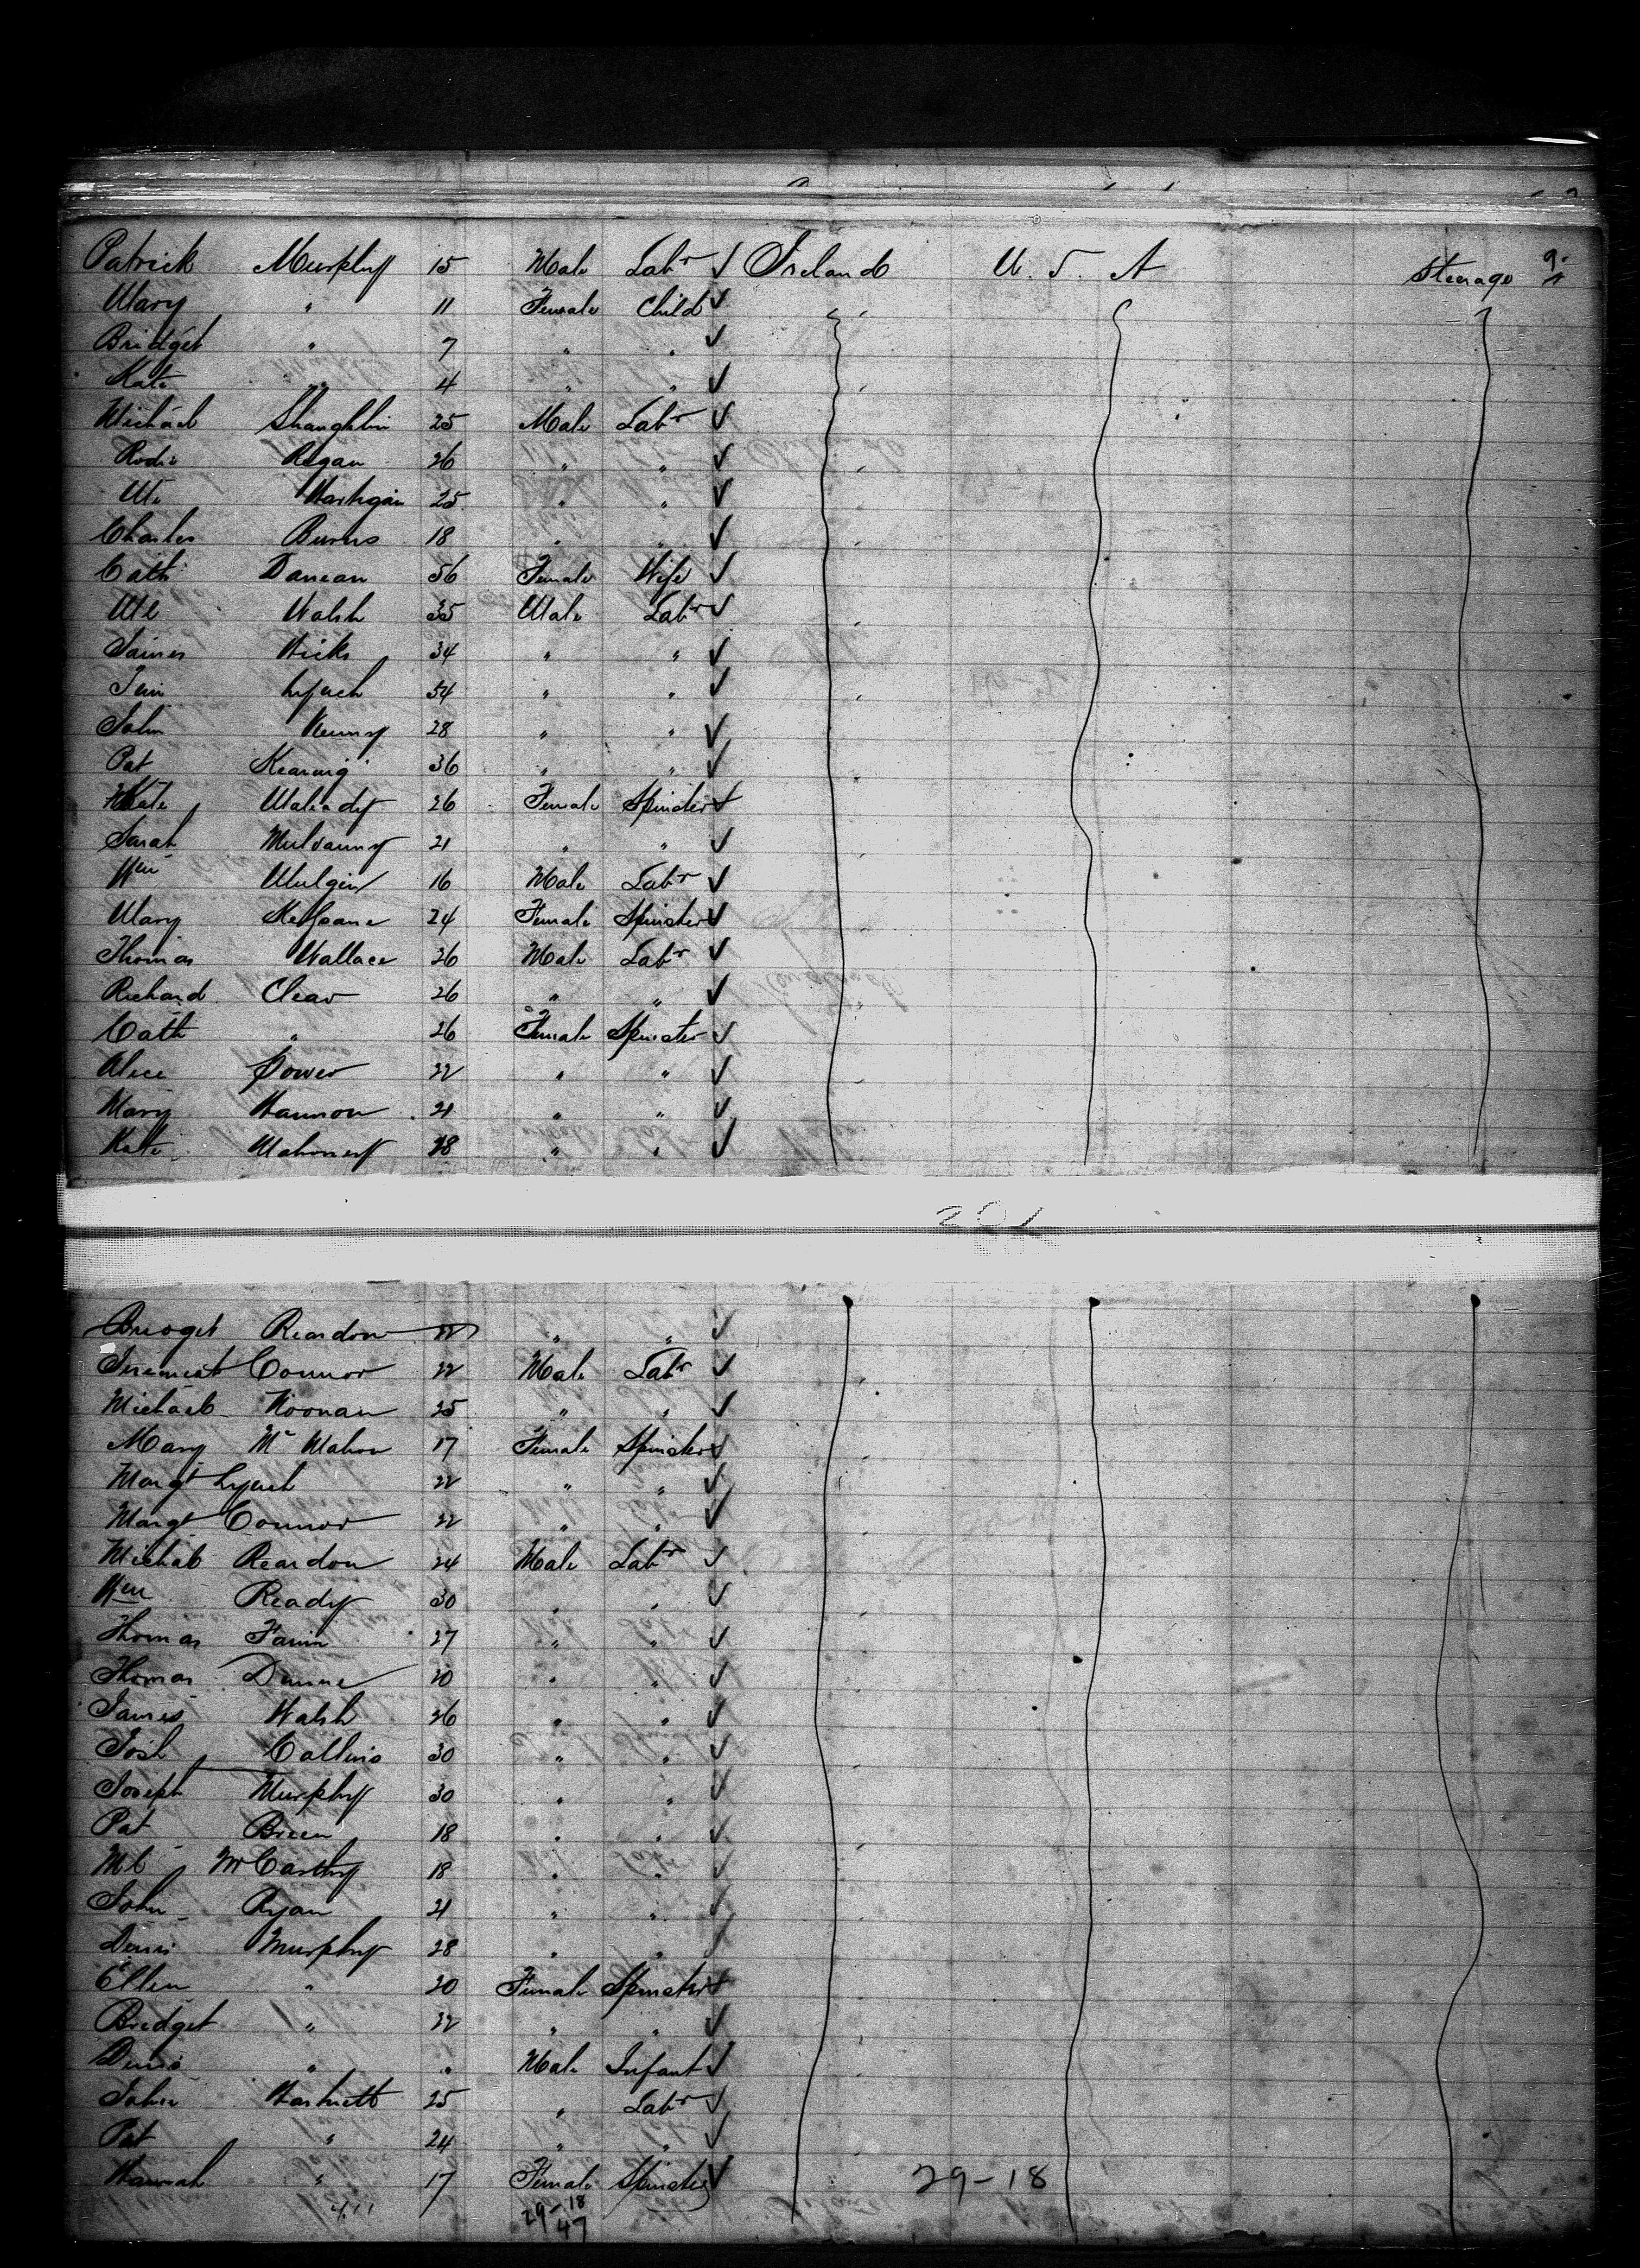 Patrick Murphy 15 Male Labr ✓ Ireland U. S. A Steerage
Mary " 11 Female Child ✓
Bridget " 7 " " ✓
Kate " 4 " " ✓
Michael Shaughlin 25 Male Labr ✓
Regan 26 " " ✓
Hartigan 25 " " ✓
Charles Burns 18 " " ✓
Cath Duncan 56 Female Wife ✓
Ml Walsh 35 Male Labr ✓
James Hicks 34 " " ✓
Tim Lynch 54 " " ✓
John Kenny 28 " " ✓
Pat 36 " " ✓
Kate 26 Female Spinster ✓
Sarah Mulvanny 21 " " ✓
Wm 16 Male Labr ✓
Mary 24 Female Spinster ✓
Thomas Wallace 26 Male Labr ✓
Richard Clear 26 " " ✓
Cath " 26 Female Spinster ✓
Alice Power 22 " " ✓
Mary Hannon 21 " " ✓
Kate Mahoney 28 " " ✓
201
Bridget Reardon 22 " " ✓
Jeremiah Connor 22 Male Labr ✓
Michael Noonan 25 " " ✓
Mary Mc Mahon 17 Female Spinster ✓
Margt Lynch 22 " " ✓
Margt Connor 22 " " ✓
Michael Reardon 24 Male Labr ✓
Wm Ready 30 " " ✓
Thomas 27 " " ✓
Thomas Dunne 20 " " ✓
James Walsh 26 " " ✓
Josh Collins 30 " " ✓
Joseph Murphy 30 " " ✓
Pat Breen 18 " " ✓
Ml McCarthy 18 " " ✓
John Ryan 21 " " ✓
Denis Murphy 28 " " ✓
Ellen " 20 Female Spinster ✓
Bridget " 22 " " ✓
Denis " " Male Infant ✓
John Hartnett 25 " Labr ✓
Pat " 24 " " ✓
Hannah " 17 Female Spinster ✓ 29-18
29-18
47